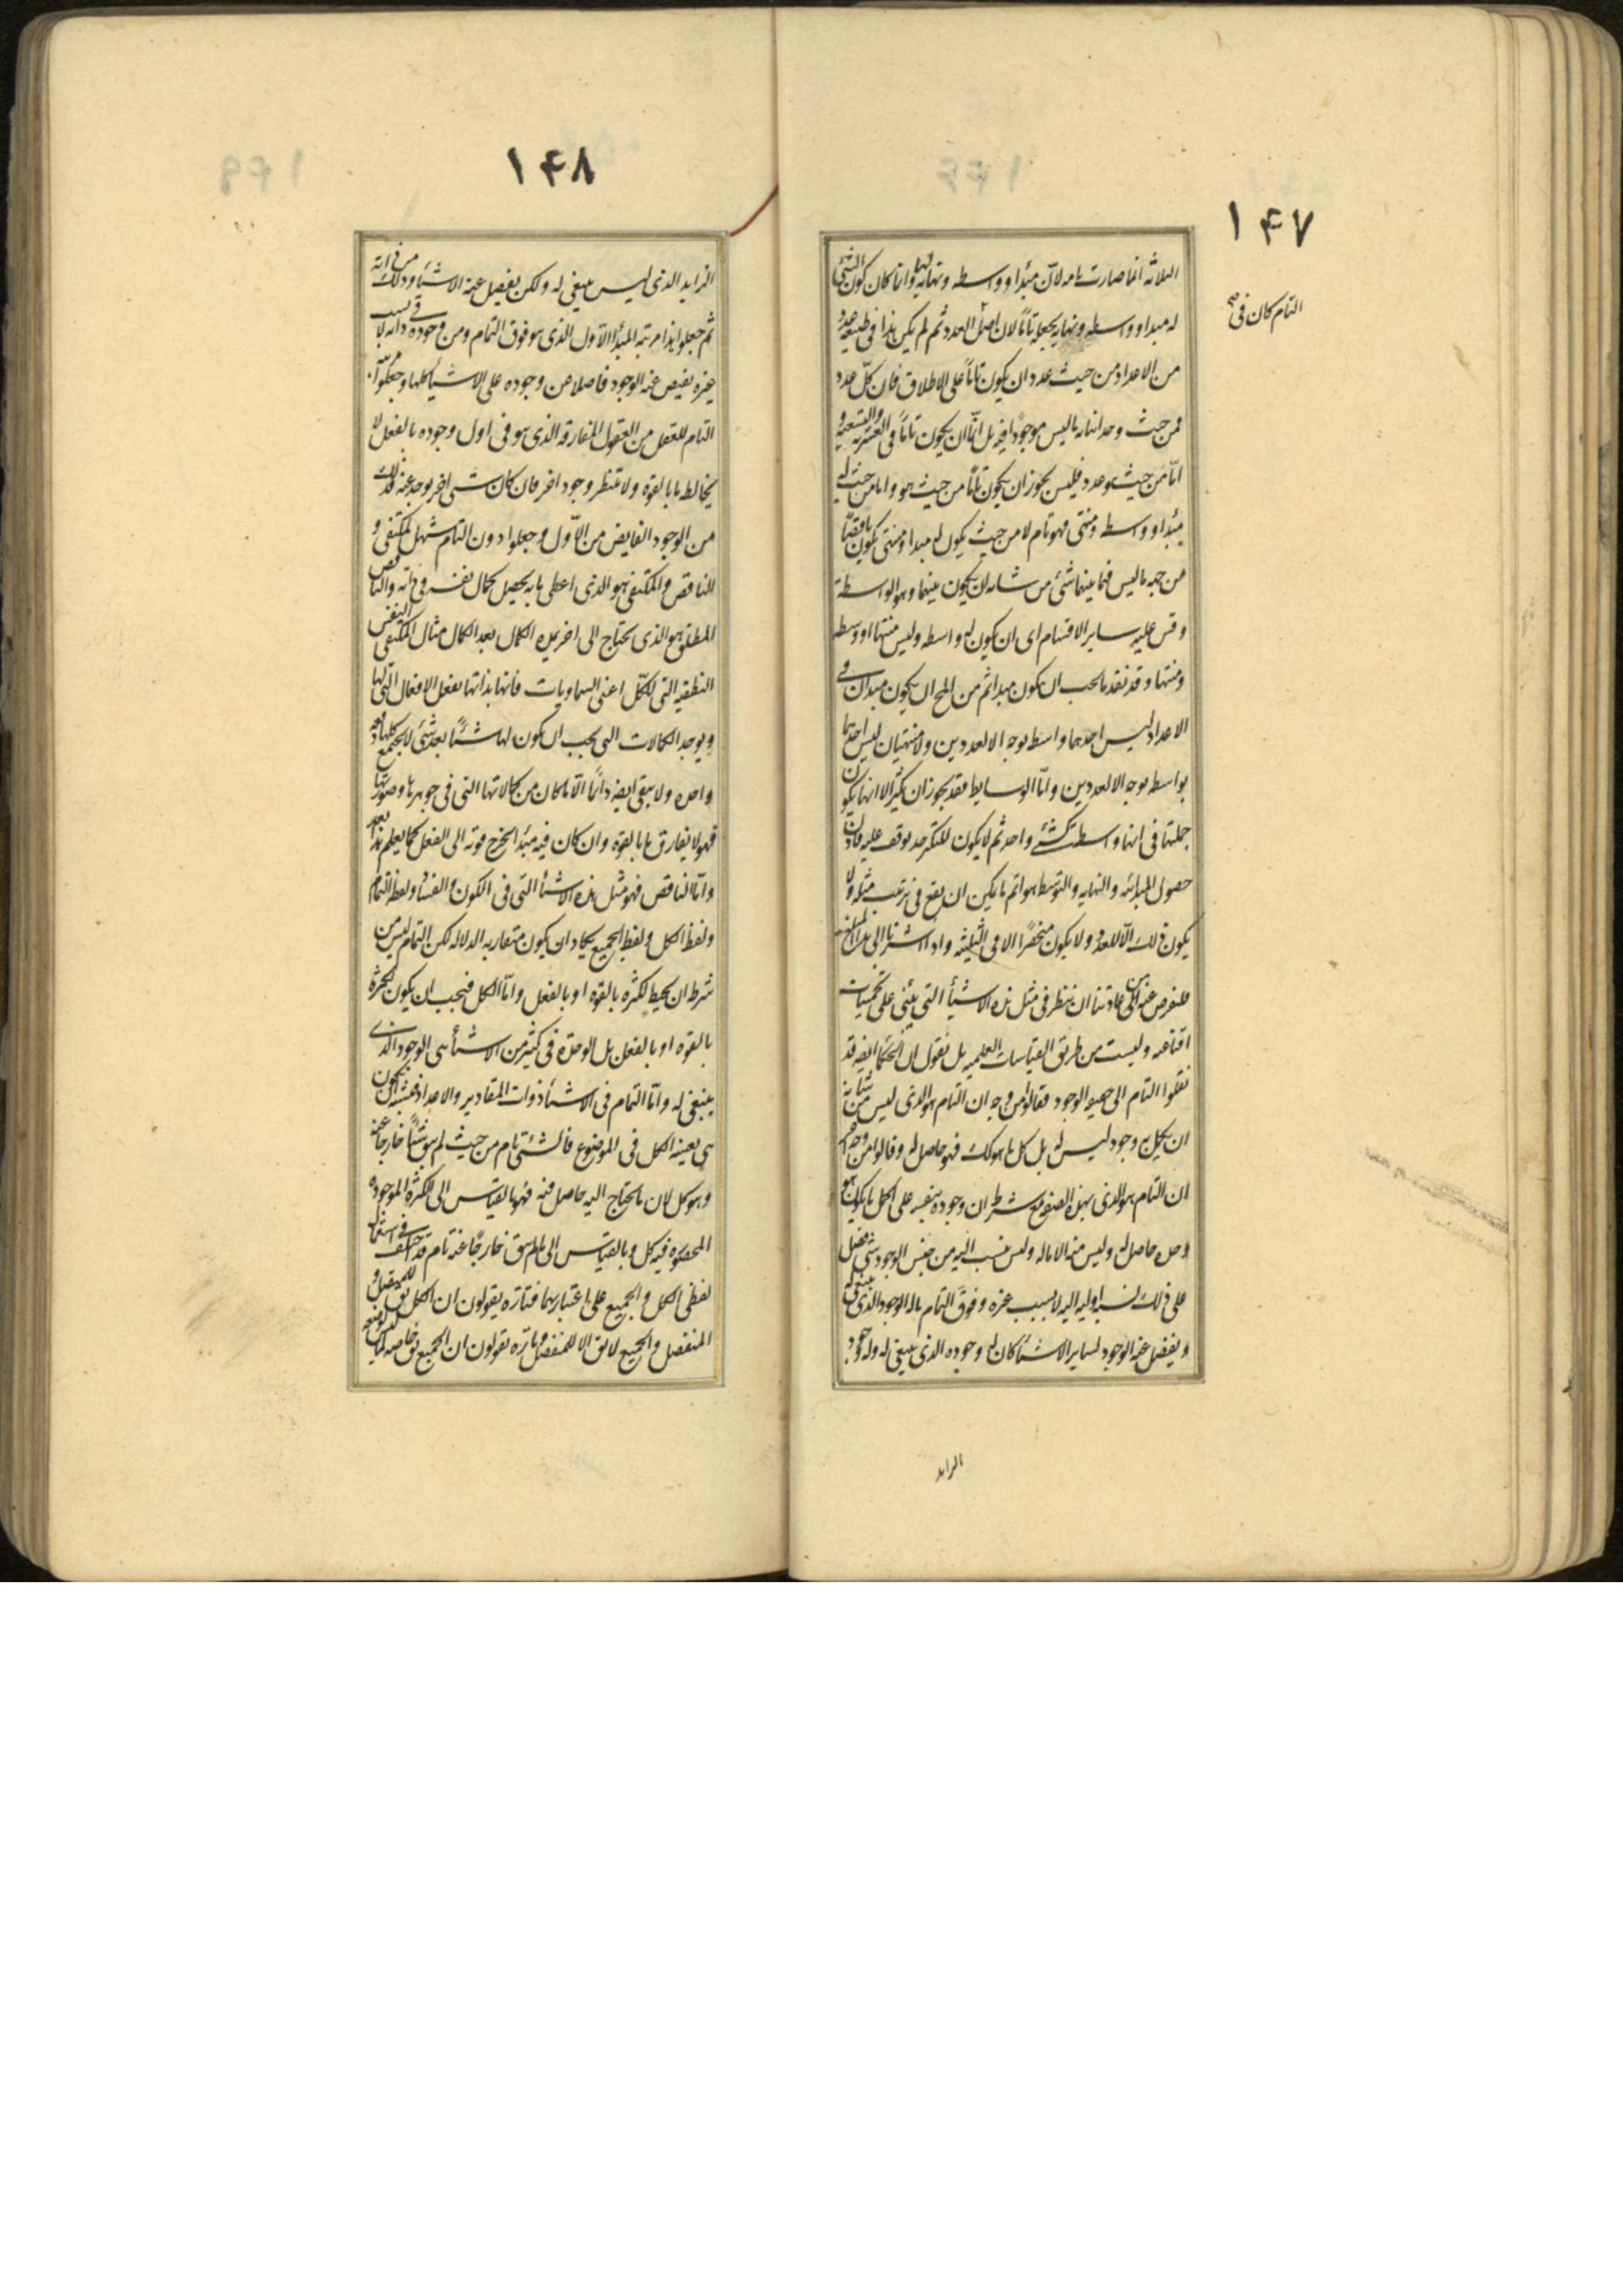 ١۴٧
الثلاثه انما صارت تامه لانّ مبدا وواسطه ونهايه لها وانما كان كون الشئ
له مبدا وواسطه ونهايه يجعله تامّا لان اصل العدد ثم لم يكن هذا فى طبيعه عدد
التمام كان فى صح
من الاعداد من حيث عدد ان يكون تامّا على الاطلاق فان كلّ عدد
فمن حيث وحداتنا ما ليس موجودًا فيه بل انّما ان يكون تامّا فى العشريه والتسعيه و
امّا من حيث هو عدد فليس يجوز ان يكون تامّا من حيث هو واما من حيث له
مبدا وواسطه ومنتهى فهو تام لا من حيث يكون له مبدا ومنتهى يكون ناقصًا
من جهه ما ليس فيما بينهما شئ من شانه ان يكون بينهما وهو الواسطة
وقس عليه ساير الاقسام اى ان يكون له واسطه وليس منتها او واسطه
ومنتها وقد فقد ما يجب ان يكون مبدا ثم من المح ان يكون مبدان فى
الاعداد ليس احدهما واسطه بوجه الا لعددين ولا منتهيان ليس احدهما
بواسطه بوجه الا لعددين وامّا الوسايط فقد يجوز ان تكثر الا انها تكون
جملتها فى انها واسطه كشئ واحد ثم لا يكون للتكثر حد يوقف عليه فاذن
حصول المبدائيه والنهايه والتوسط هو اتم ما يمكن ان يقع فى ترتيب مثله ولا
يكون ذلك الّا للعدد ولا يكون منحصرًا الا فى الثلثيه واذا اشرنا الى هذا المبلغ
فلنعرض عنه فليس من عادتنا ان ننظر فى مثل هذه الاشيأ التى يبنى على تخمينات
اقناعيه وليست من طريق القياسات العلميه بل نقول ان الحكما ايضه قد
نقلوا التمام الى حقيقه الوجود فقالوا من وجه ان التام هو الذى ليس شئ من شانه
ان يكمل به وجوده ليس له بل كل ما هو كك فهو حاصل له وقالوا من وجه اخر
ان التام هو الذى بهذه الصفه مع شرط ان وجوده بنفسه على اكمل ما يكون هو
وحده حاصل له وليس منه الا ما له وليس ينسب اليه من جنس الوجود شئ يفضل
على ذلك نسبة اوليه اليه لا بسبب غيره وفوق التمام ما له الوجود الذى ينبغى له
ويفضل عنه الوجود لساير الاشيأ كان له وجوده الذى ينبغى له وله وجود
الزايد
١۴٨
الزايد الذى ليس ينبغى له ولكن يفضل عنه الاشيأ وذلك من ذاته
ثم جعلوا هذا مرتبه المبدا الاول الذى هو فوق التمام ومن وجوده فى ذاته لا بسبب
غيره يفيض عنه الوجود فاضلا عن وجوده على الاشيأ كلها وجعلوا مرتبه
التمام للعقل من العقول المفارقه الذى هو فى اول وجوده بالفعل لا
يخالطه ما بالقوه ولا ينتظر وجود اخر فان كان شئ اخر يوجد عنه فذلك
من الوجود الفايض من الاوّل وجعلوا دون التمام شيئين المكتفى و
الناقص والمكتفى هو الذى اعطى ما به يحصل كمال نفسه فى ذاته والناقص
المطلق هو الذى يحتاج الى اخر يمده الكمال بعد الكمال مثال المكتفى النفس
النطقيه التى للكل اعنى السماويات فانها بذاتها يفعل الافعال التى لها
ويوجد الكمالات التى يجب ان يكون لها شيئًا بعد شئ لا يجتمع كلها دفعه
واحده ولا يبقى ايضه دائمًا الّا ما كان من كمالاتها التى فى جوهرها وصورتها
فهو لا يفارق ما بالقوه وان كان فيه مبدا يخرج قوته الى الفعل كما يعلم هذا بعد
وامّا الناقص فهو مثل هذه الاشيأ التى فى الكون والفساد ولفظ التمام
ولفظ الكل ولفظ الجميع يكاد ان يكون متقاربه الدلاله لكن التمام ليس من
شرطه ان يحيط لكثره بالقوه او بالفعل وامّا الكل فيجب ان يكون لكثرة
بالقوه او بالفعل بل الوحدة فى كثير من الاشيأ هى الوجود الذى
ينبغى له وامّا التمام فى الاشيأ ذوات المقادير والاعداد فيشبه ان يكون
هى بعينه الكل فى الموضوع فالشئ تام من حيث لم يبق شيئًا خارجًا عنه
وهو كل لان ما يحتاج اليه حاصل فيه فهو بالقياس الى الكثرة الموجوده
المحصوره فيه كل وبالقياس الى ما لم يبق خارجًا عنه تام قد اختلف فى استعمال
لفظى الكل والجميع على اعتباريهما فتاره يقولون ان الكل يق للمتصل و
المنفصل والجميع لا يق الا للمنفصل وتاره يقولون ان الجميع يق خاصه لما ليس لوضعه